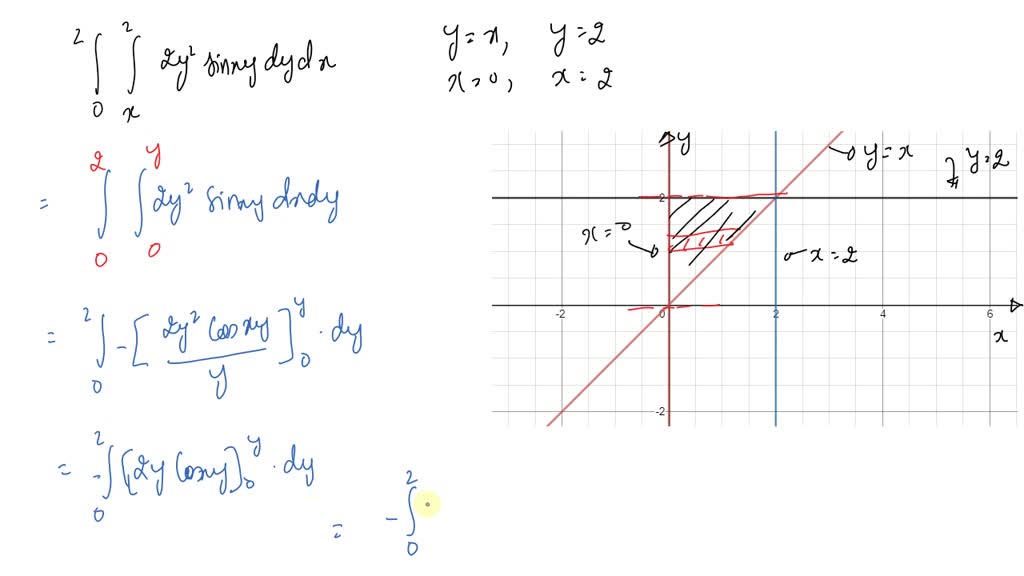 ∫₀² ∫ₓ² 2y² sinxy dy dx
y = x, y = 2
x = 0, x = 2
= ∫₀² ∫₀ʸ 2y² sinxy dx dy
= ∫₀² -[2y² cosxy / y]₀ʸ · dy
= -∫₀² [2y cosxy]₀ʸ · dy
= -∫₀²
y
y = x
y = 2
2
x = 0
x = 2
-2 0 2 4 6
x
-2